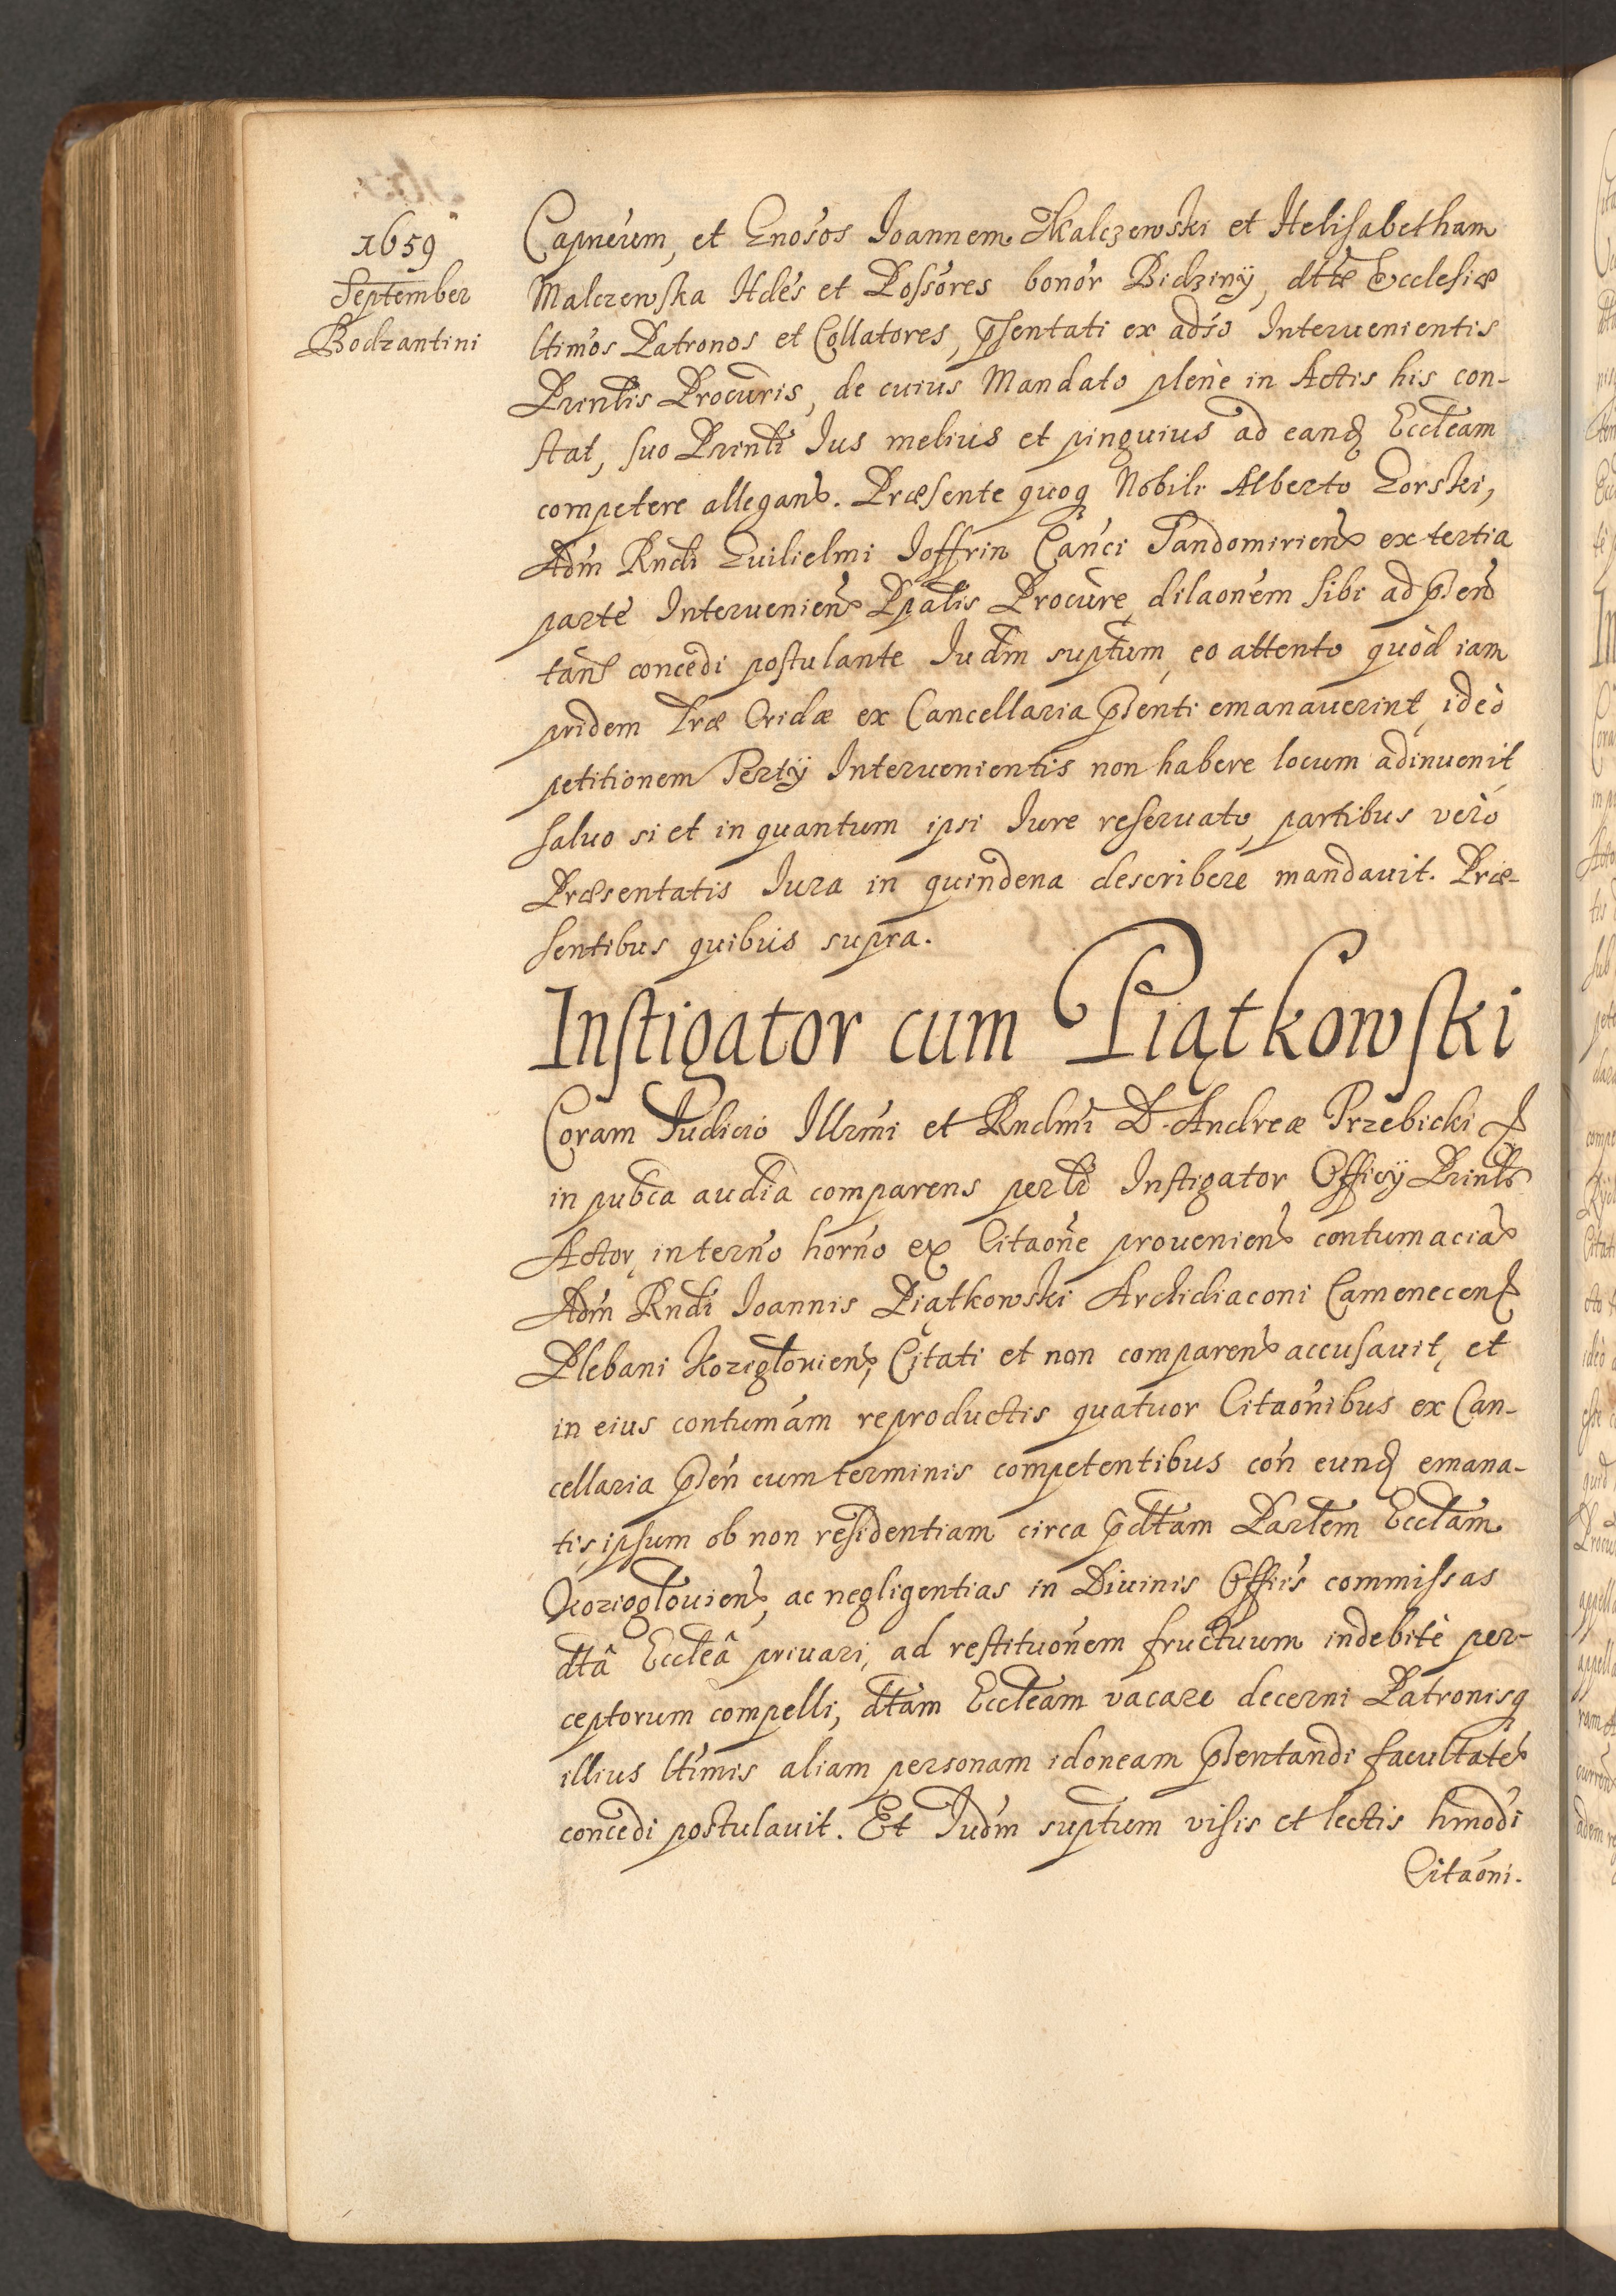 1659
September
Bodzantini
Capneum, et Gnosos Joannem Malczewski et Helisabetham
Malczewska Hdes et Possores bonor Bidziny, dttæ Ecclesiæ
ltimos Patronos et Collatores, psentati ex adso Interuenientis
Prinlis Procuris, de cuius Mandato plenè in Actis his con-
stat, suo Prinli Ius melius et pinguius ad eand Eccleam
competere allegans. Præsente quoq Nobili Alberto Gorski,
Adm Rndi Guilielmi Joffrin Canci Sandomiriens ex tertia
parte Interueniens Ppalis Procure, dilaonem sibi ad psen
tans concedi postulante Iudm suptum, eo attento quòd iam
pridem Lræ Cridæ ex Cancellaria psenti emanauerint, ideò
petitionem Tertÿ Interuenientis non habere locum adinuenit
saluo si et in quantum ipsi Iure reseruato, partibus verò
Præsentatis Iura in quindena describere mandauit. Præ-
sentibus quibus supra.
Instigator cum Piątkowski
Coram Iudicio Illrmi et Rndmi D. Andreæ Trzebicki
in pubca audia comparens perlr Instigator Officÿ Prinls
Actor, in terno horno ex Citaone proueniens contumacias
Adm Rndi Ioannis Piątkowski Archidiaconi Camenecens
Plebani Koziegłouiens, Citati et non comparens accusauit, et
in eius contumam reproductis quatuor Citaonibus ex Can-
cellaria psen cum terminis competentibus con eund emana-
tis, ipsum ob non residentiam circa pdttam Parlem Ecclam
Koziogłouiens, ac negligentias in Diuinis Offiis commissas
dttâ Eccleâ priuari, ad restituonem fructuum indebitè per-
ceptorum compelli, dttam Eccleam vacare decerni Patronisq
illius ltimis aliam personam idoneam psentandi facultates
concedi postulauit. Et Iudm suptum visis et lectis hmodi
Citaoni-